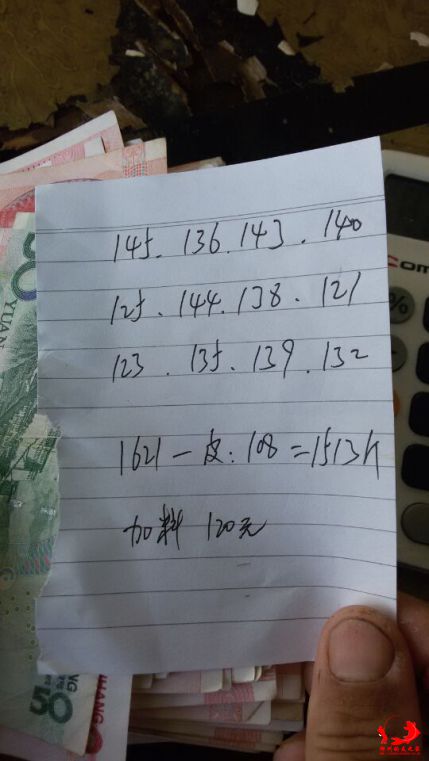 145.136.143.140
125.144.138.121
123.135.139.132
1621-皮:108=1513斤
加料 120元
YUAN
50
com
%